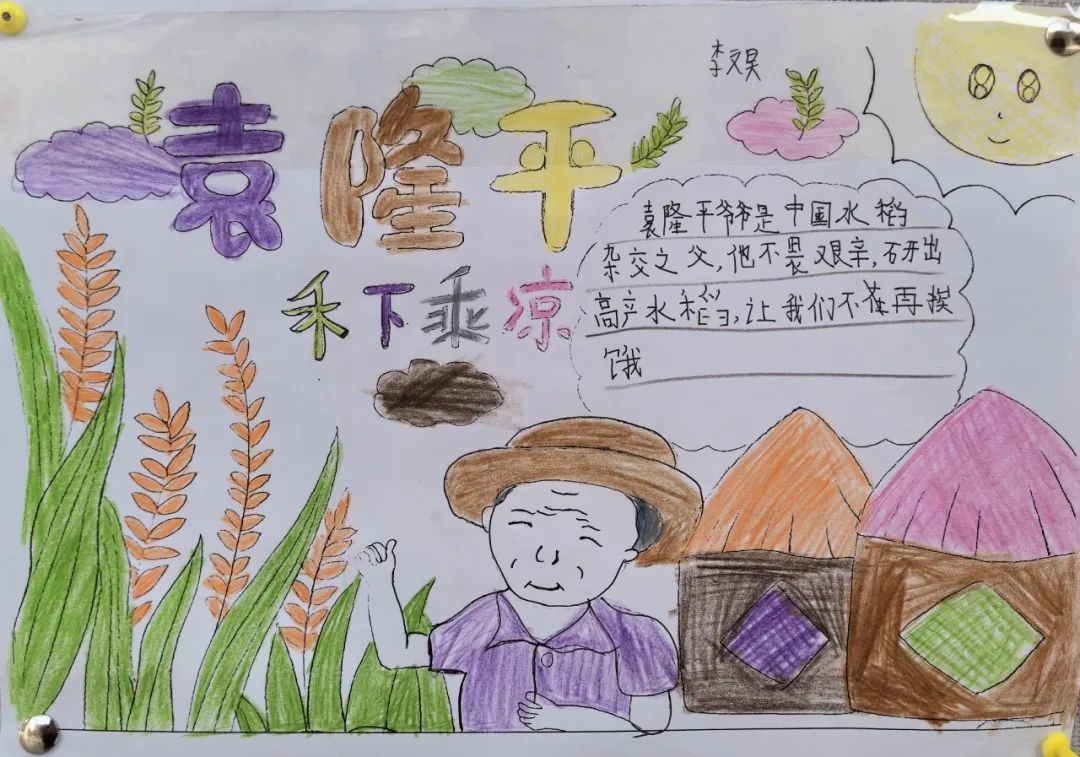 李文昊
袁隆平
禾下乘凉
袁隆平爷爷是中国水稻
杂交之父,他不畏艰辛,研出
高产水稻,让我们不在再挨
饿